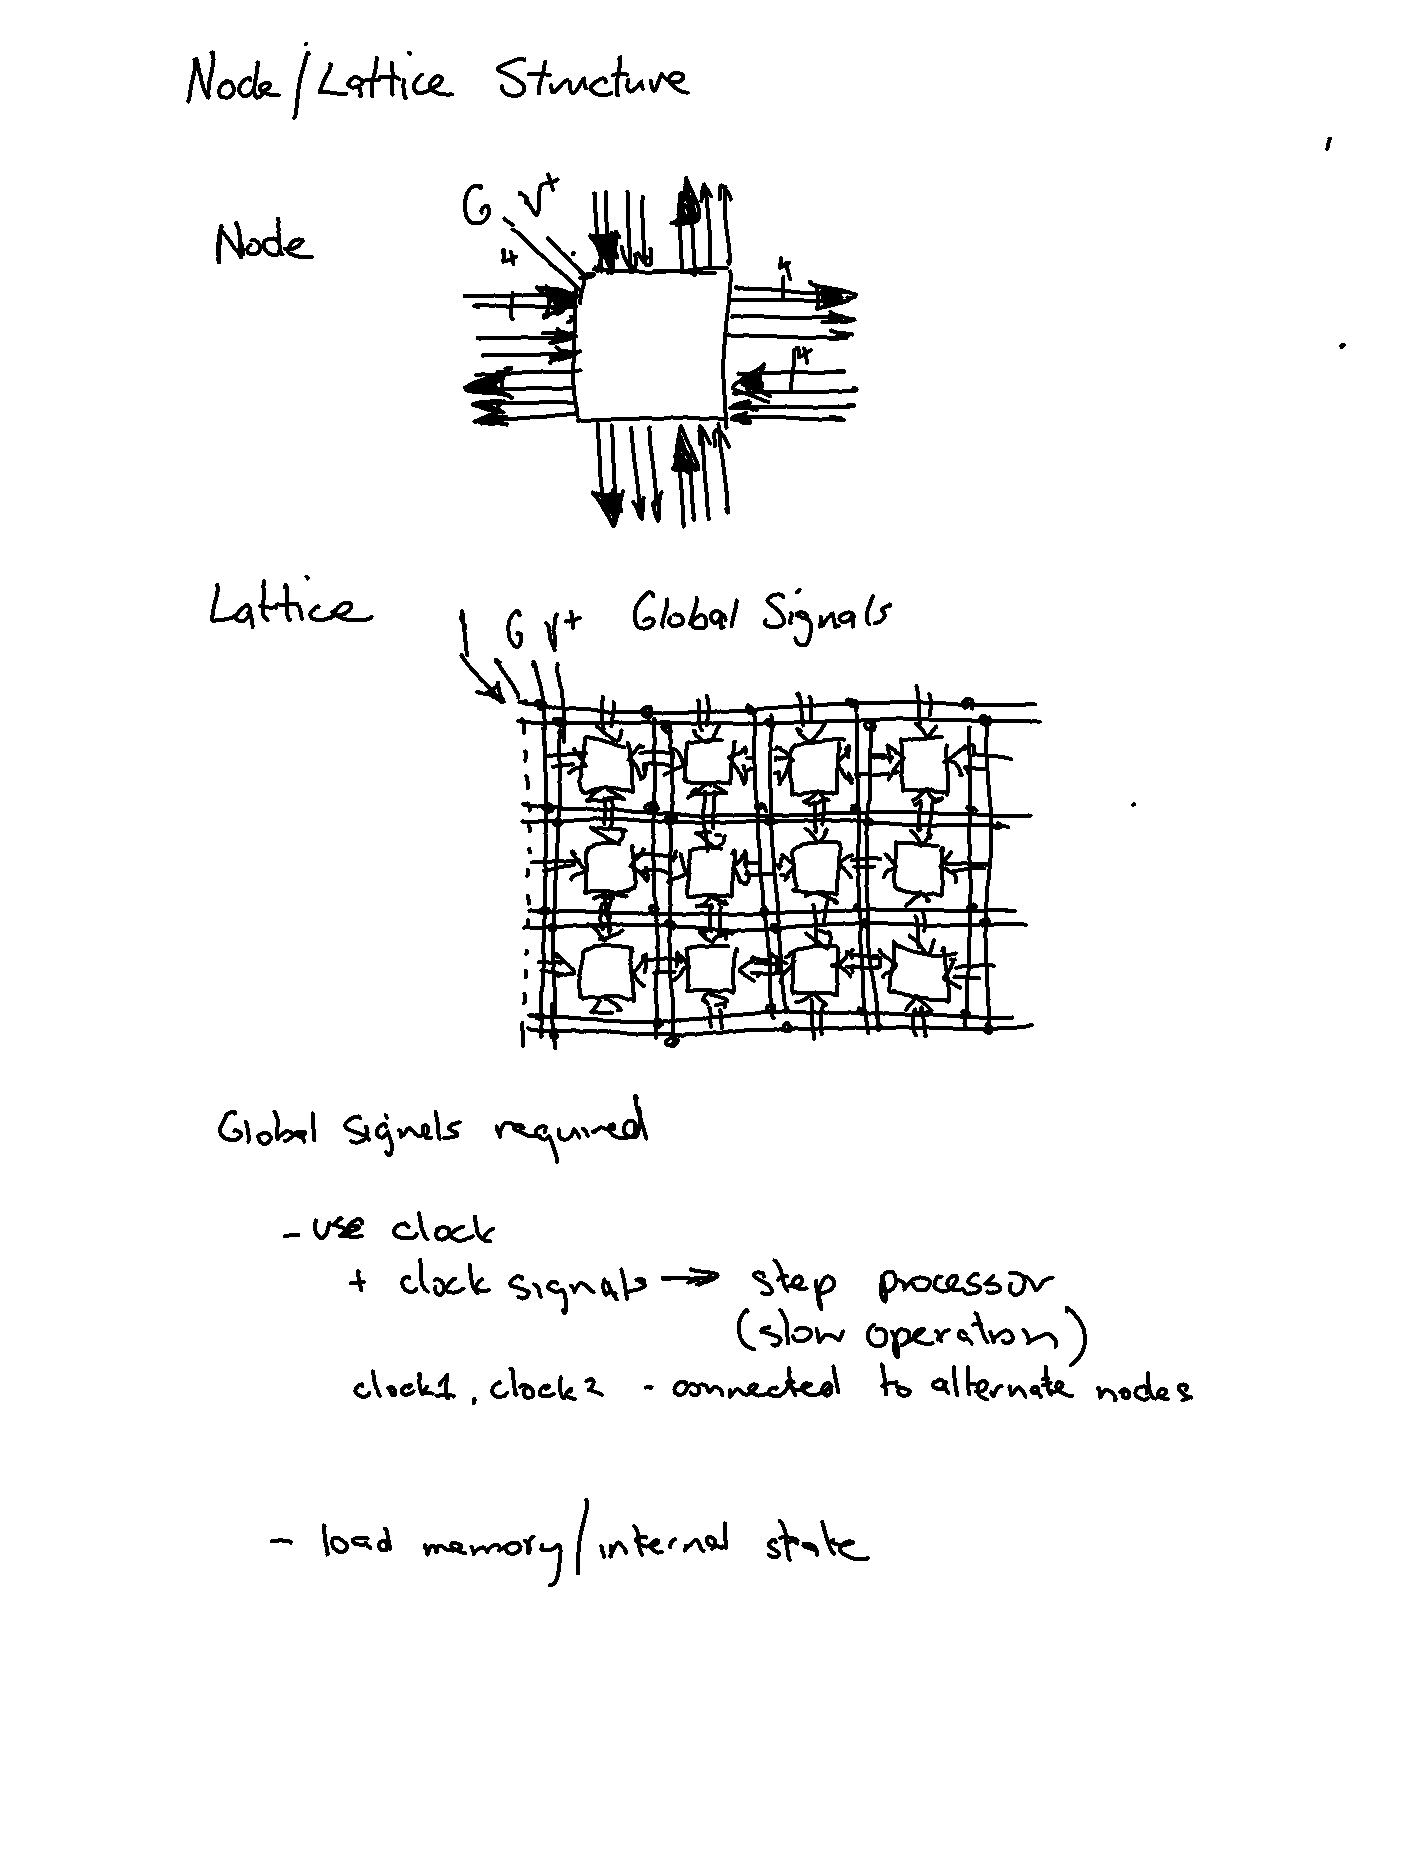 Node/Lattice Structure
G V+
Node
4
4
4
Lattice
G V+ Global Signals
Global signals required
- use clock
+ clock signals → step processor
(slow operation)
clock1, clock2 - connected to alternate nodes
- load memory/internal state